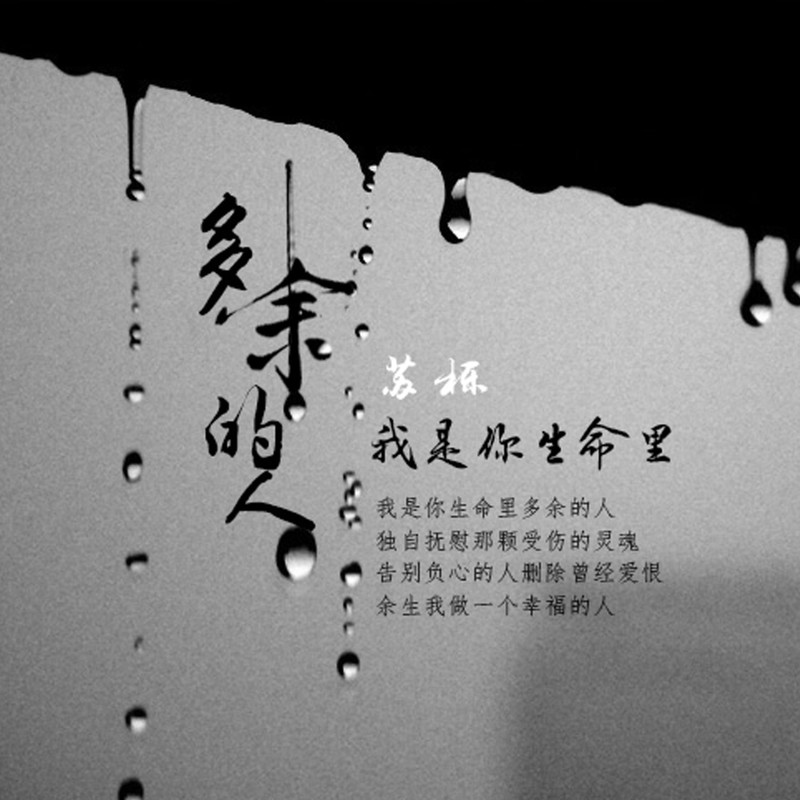 多余的人
苏栎
我是你生命里
我是你生命里多余的人
独自抚慰那颗受伤的灵魂
告别负心的人删除曾经爱恨
余生我做一个幸福的人